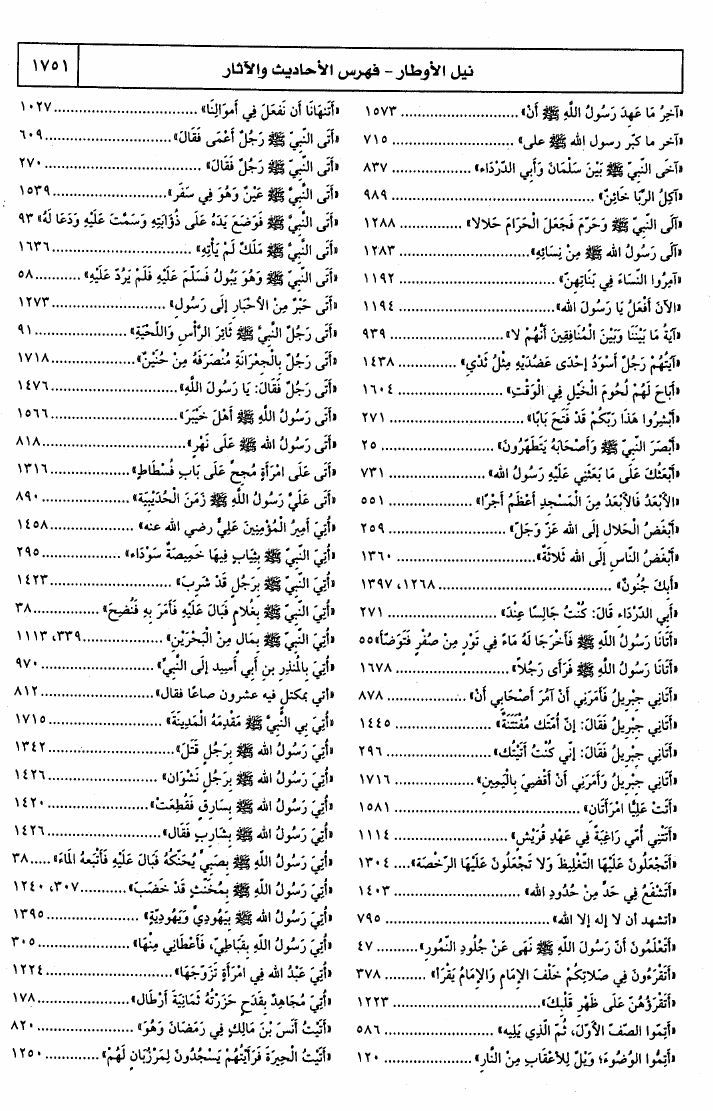 نيل الأوطار - فهرس الأحاديث والآثار
١٧٥١
«آخِرُ مَا عَهِدَ رَسُولُ اللَّهِ ﷺ أَنْ» ............ ١٥٧٣
«آخر ما كبّر رسول الله ﷺ على» ............ ٧١٥
«آخَى النَّبِيّ ﷺ بَيْنَ سَلْمَانَ وَأَبِي الدَّرْدَاءِ» ............ ٨٣٧
«آكِلُ الرِّبَا خَائِنٌ» ............ ٩٨٩
«آلَى النَّبِيّ ﷺ وَحَرَّمَ فَجَعَلَ الْحَرَامَ حَلالا» ............ ١٢٨٨
«آلَى رَسُولُ اللهِ ﷺ مِنْ نِسَائِهِ» ............ ١٢٨٣
«آمِرُوا النِّسَاءَ فِي بَنَاتِهِنّ» ............ ١١٩٢
«الآنَ أَفْعَلُ يَا رَسُولَ الله» ............ ١١٩٤
«آيَةُ مَا بَيْنَنَا وَبَيْنَ الْمُنَافِقِينَ أَنَّهُمْ لا» ............ ٩٣٩
«آيَتُهُمْ رَجُلٌ أَسْوَدُ إحْدَى عَضُدَيْهِ مِثْلُ ثَدْيِ» ............ ١٤٣٨
«أَبَاحَ لَهُمْ لُحُومَ الْخَيْلِ فِي الْوَقْتِ» ............ ١٦٠٤
«أَبْشِرُوا هَذَا رَبّكُمْ قَدْ فَتَحَ بَابًا» ............ ٢٧١
«أَبْصَرَ النَّبِيّ ﷺ وَأَصْحَابُهُ يَتَطَهّرُونَ» ............ ٢٥
«أَبْعَثُكَ عَلَى مَا بَعَثَنِي عَلَيْهِ رَسُولُ الله» ............ ٧٣١
«الأَبْعَدُ فَالأَبْعَدُ مِنَ الْمَسْجِدِ أَعْظَمُ أَجْرًا» ............ ٥٥١
«أَبْغَضُ الْحَلالِ إلَى الله عَزّ وَجَلّ» ............ ٢٥٩
«أَبْغَضُ النَّاسِ إلَى الله ثَلاثَةٌ» ............ ١٣٦٠
«أَبِكَ جُنُونٌ» ............ ١٢٦٨، ١٣٩٧
«أَبِي الدَّرْدَاءِ قَالَ: كُنْتُ جَالِسًا عِنْدَ» ............ ٢٧١
«أَتَانَا رَسُولُ اللهِ ﷺ فَأَخْرَجَا لَهُ مَاءً فِي تَوْرٍ مِنْ صُفْرٍ فَتَوَضّأَ» ٥٥
«أَتَانَا رَسُولُ اللهِ ﷺ فَرَأَى رَجُلاً» ............ ١٦٧٨
«أَتَانِي جِبْرِيلُ فَأَمَرَنِي أَنْ آمُرَ أَصْحَابِي أَنْ» ............ ٨٧٨
«أَتَانِي جِبْرِيلُ فَقَالَ: إِنّ أُمّتَكَ مُفْتَتَنَةٌ» ............ ١٤٤٥
«أَتَانِي جِبْرِيلُ فَقَالَ: إِنّي كُنْتُ أَتَيْتُكَ» ............ ٢٩٦
«أَتَانِي جِبْرِيلُ وَأَمَرَنِي أَنْ أَقْضِيَ بِالْيَمِينِ» ............ ١٧١٦
«أَتَتْ عَلِيًّا امْرَأَتَانِ» ............ ١٥٨١
«أَتَتْنِي أُمّي رَاغِبَةً فِي عَهْدِ قُرَيْشٍ» ............ ١١١٤
«أَتَجْعَلُونَ عَلَيْهَا التَّغْلِيظَ وَلا تَجْعَلُونَ عَلَيْهَا الرّخْصَةَ» .... ١٣٠٤
«أَتَشْفَعُ فِي حَدّ مِنْ حُدُودِ الله» ............ ١٤٠٣
«اتشهد أن لا إله إلا الله» ............ ٧٩٥
«أَتَعْلَمُونَ أَنّ رَسُولَ اللهِ ﷺ نَهَى عَنْ جُلُودِ النُّمُورِ» ............ ٤٧
«أَتَقْرَءُونَ فِي صَلاتِكُمْ خَلْفَ الإِمَامِ وَالإِمَامُ يَقْرَأُ» ............ ٣٧٨
«أَتَقْرَؤُهُنّ عَلَى ظَهْرِ قَلْبِكَ» ............ ١٢٢٣
«أَتِمُوا الصّفّ الأَوّلَ، ثُمّ الّذِي يَلِيهِ» ............ ٥٨٦
«أَتِمُوا الْوُضُوءَ؛ وَيْلٌ لِلأَعْقَابِ مِنْ النَّارِ» ............ ١٢٠
«أَتَنْهَانَا أَن نَفْعَلَ فِي أَموَالِنَا» ............ ١٠٢٧
«أَتَى النَّبِيّ ﷺ رَجُلٌ أَعْمَى فَقَالَ» ............ ٦٠٩
«أَتَى النَّبِيّ ﷺ رَجُلٌ فَقَالَ» ............ ٢٧٠
«أَتَى النَّبِيَّ ﷺ عَيْنٌ وَهُوَ فِي سَفَرٍ» ............ ١٥٣٩
«أَتَى النَّبِيُّ ﷺ فَوَضَعَ يَدَهُ عَلَى ذُؤَابَتِهِ وَسَمّتَ عَلَيْهِ وَدَعَا لَهُ» ٩٣
«أَتَى النَّبِيَّ ﷺ مَلَكٌ لَمْ يَأْتِهِ» ............ ١٦٣٦
«أَتَى النَّبِيّ ﷺ وَهُوَ يَبُولُ فَسَلّمَ عَلَيْهِ فَلَمْ يَرُدّ عَلَيْهِ» ............ ٥٨
«أَتَى حَبْرٌ مِنْ الأَحْبَارِ إِلَى رَسُولِ» ............ ١٢٧٣
«أَتَى رَجُلٌ النَّبِيَّ ﷺ ثَائِرَ الرَّأْسِ وَاللّحْيَةِ» ............ ٩١
«أَتَى رَجُلٌ بِالْجِعْرَانَةِ مُنْصَرَفَهُ مِنْ حُنَيْنٍ» ............ ١٧١٨
«أَتَى رَجُلٌ فَقَالَ: يَا رَسُولَ اللَّهِ» ............ ١٤٧٦
«أَتَى رَسُولُ اللَّهِ ﷺ أَهْلَ خَيْبَرَ» ............ ١٥٦٦
«أَتَى رَسُولُ الله ﷺ عَلَى نَهْرٍ» ............ ٨١٨
«أَتَى عَلَى امْرَأَةٍ مُجِحٍّ عَلَى بَابِ فُسْطَاطٍ» ............ ١٣١٦
«أَتَى عَلَيّ رَسُولُ اللَّهِ ﷺ زَمَنَ الْحُدَيْبِيَةِ» ............ ٨٩٠
«أُتِيَ أَمِيرُ الْمُؤْمِنِينَ عَلِيٌّ رضي الله عنه» ............ ١٤٥٨
«أُتِيَ النَّبِيّ ﷺ بِثِيَابٍ فِيهَا خَمِيصَةٌ سَوْدَاء» ............ ٢٩٥
«أُتِيَ النَّبِيّ ﷺ بِرَجُلٍ قَدْ شَرِبَ» ............ ١٤٢٣
«أُتِيَ النَّبِيّ ﷺ بِغُلَامٍ فَبَالَ عَلَيْهِ فَأَمَرَ بِهِ فَنُضِحَ» ............ ٣٨
«أُتِيَ النَّبِيّ ﷺ بِمَالٍ مِنْ الْبَحْرَيْنِ» ............ ٣٣٩، ١١١٣
«أُتِيَ بِالْمُنْذِرِ بن أَبِي أُسيد إلَى النَّبِيّ» ............ ٩٧٠
«اتي بمكتل فيه عشرون صاعًا فقال» ............ ٨١٢
«أُتِيَ بي النَّبِيّ ﷺ مَقْدِمَهُ الْمَدِينَةَ» ............ ١٧١٥
«أُتِيَ رَسُولُ الله ﷺ بِرَجُلٍ قَتَلَ» ............ ١٣٤٢
«أُتِيَ رَسُولُ الله ﷺ بِرَجُلٍ نَشْوَان» ............ ١٤٢٦
«أُتِيَ رَسُولُ الله ﷺ بِسَارِقٍ فَقُطِعَتْ» ............ ١٤٢٠
«أُتِيَ رَسُولُ الله ﷺ بِشَارِبٍ فَقَال» ............ ١٤٢٦
«أُتِيَ رَسُولُ اللَّهِ ﷺ بِصَبِيّ يُحَنّكُهُ فَبَالَ عَلَيْهِ فَأَتْبَعهُ المَاءَ» ..... ٣٨
«أُتِيَ رَسُولُ اللَّهِ ﷺ بِمُخَنّثٍ قَدْ خَضَبَ» ............ ٣٠٧، ١٢٤٠
«أُتِيَ رَسُولُ الله ﷺ بِيَهُودِيّ وَيَهُودِيّةٍ» ............ ١٣٩٥
«أُتِيَ رَسُولُ اللَّهِ ﷺ بِقَبَاطِيّ، فَأَعْطَانِي مِنْهَا» ............ ٣٠٥
«أُتِيَ عَبْدُ الله فِي امْرَأَةٍ تَزَوّجَهَا» ............ ١٢٢٤
«أُتِيَ مُجَاهِدٌ بِقَدَحٍ حَزَرْتُهُ ثَمَانِيَةَ أَرْطَالٍ» ............ ١٧٨
«أَتَيْتُ أَنَسَ بْنَ مَالِكٍ فِي رَمَضَانَ وَهُوَ» ............ ٨٢٠
«أَتَيْتُ الْحِيرَةَ فَرَأَيْتُهُمْ يَسْجُدُونَ لِمَرْزُبَانٍ لَهُمْ» ............ ١٢٥٠